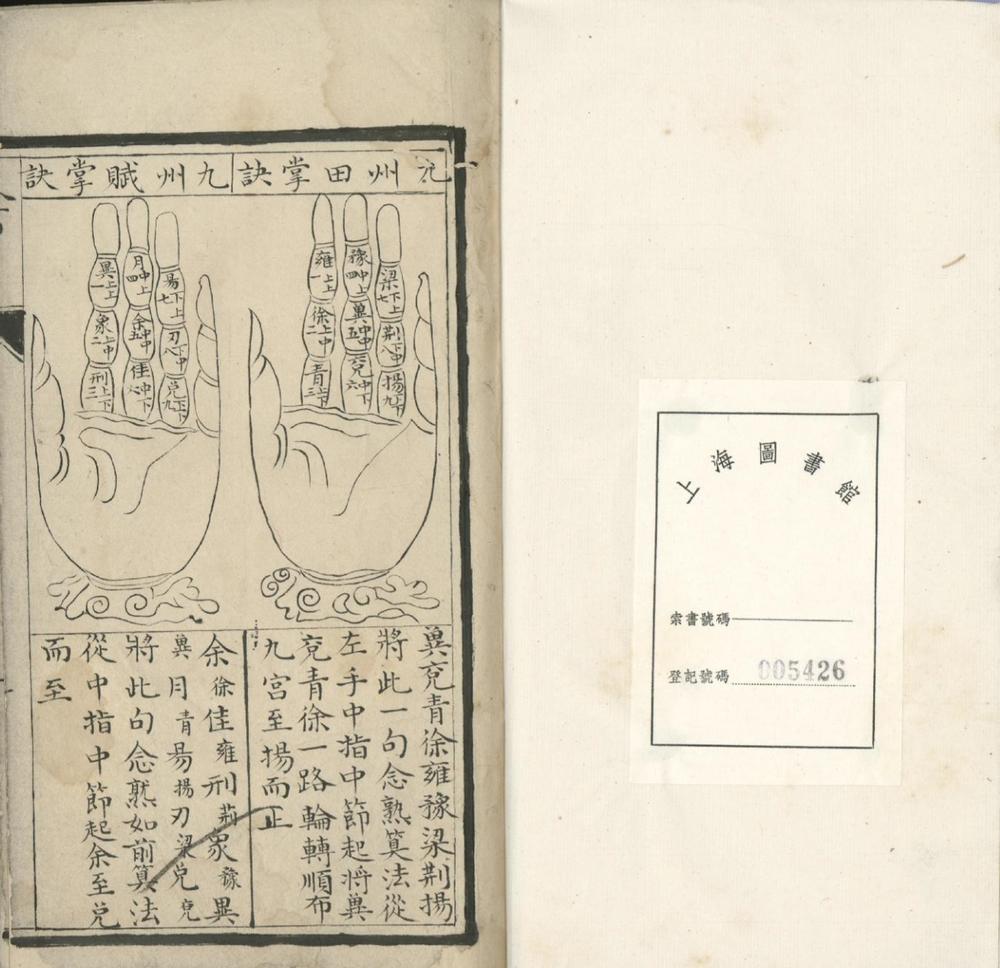 九州田掌訣
雍一上上
徐二上中
青三上下
豫四中上
兾五中中
兗六中下
梁七下上
荆八下中
揚九下下
兾兗青徐雍豫梁荆揚
將此一句念熟筭法從
左手中指中節起將兾
兗青徐一路輪轉順布
九宮至揚而正
九州賦掌訣
異一上上
象二上中
刑三上下
月四中上
余五中中
佳六中下
昜七下上
刃八下中
兌九下下
余徐佳雍刑荊象豫異
兾月青昜揚刃梁兌兗
將此句念熟如前筭法
從中指中節起余至兌
而至
上海圖書館
索書號碼
登記號碼 005426